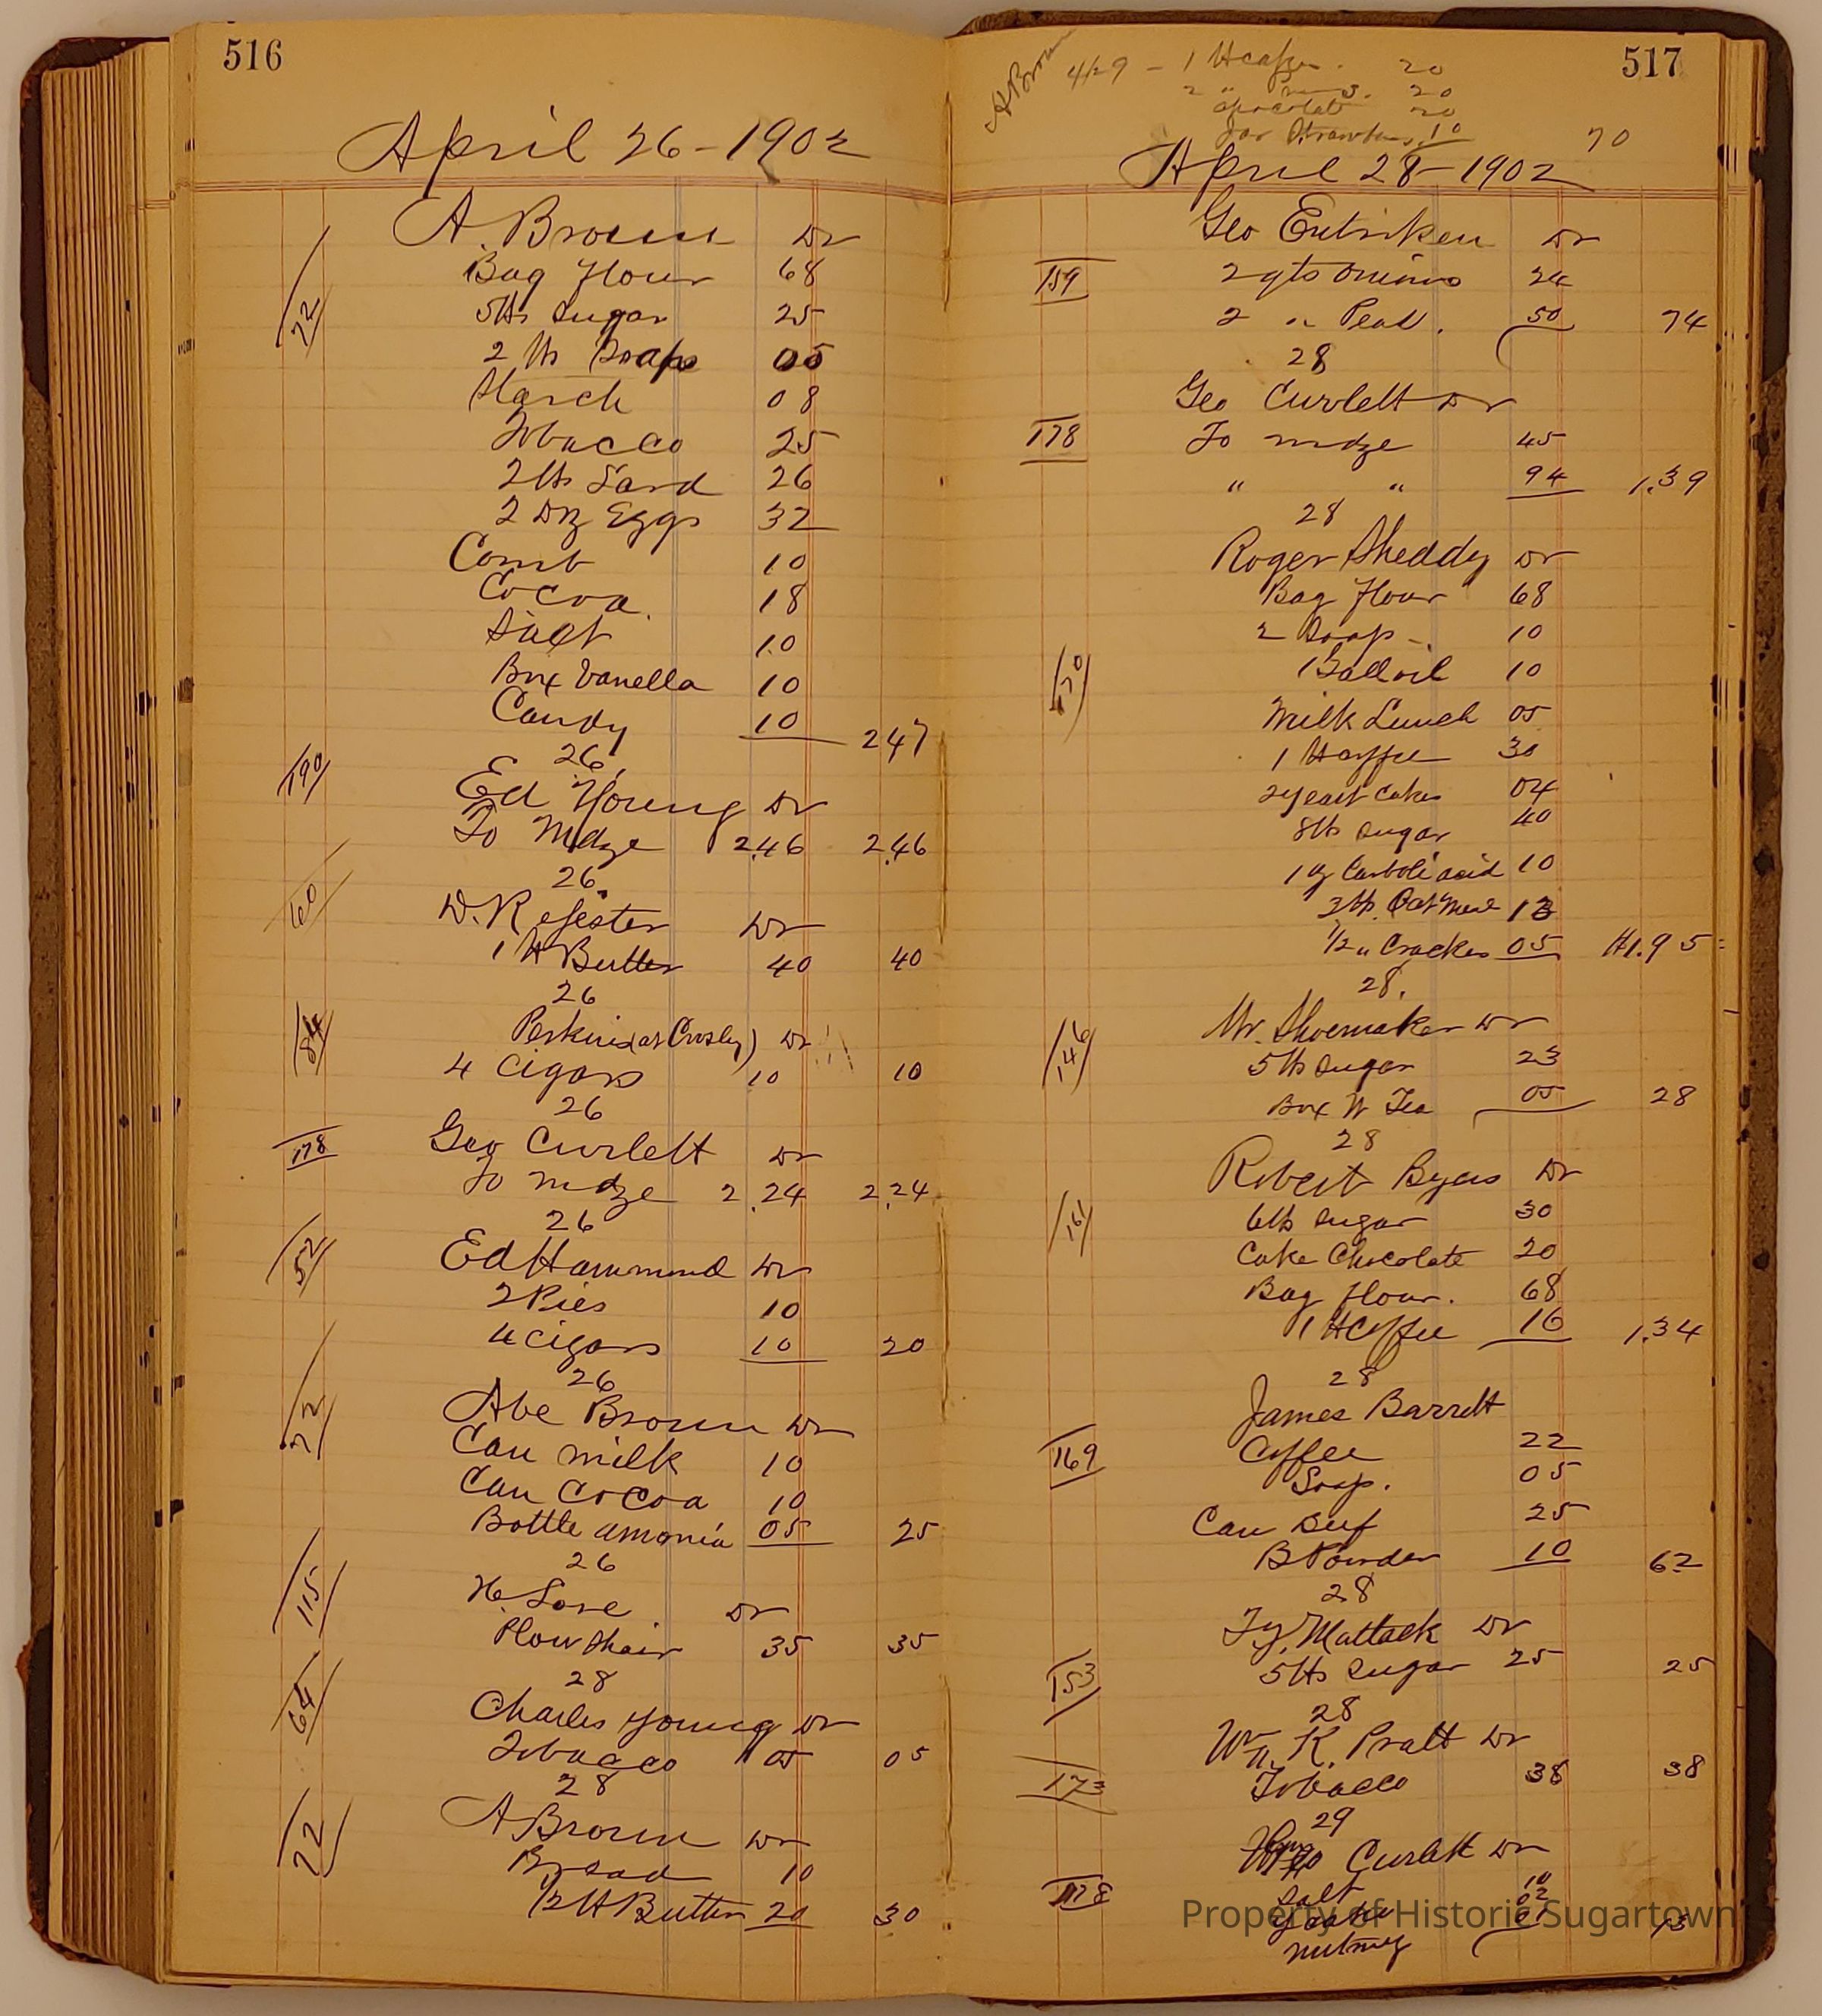 516
April 26-1902
A. Brown Dr
72
Bag Flour 68
5 lbs Sugar 25
2 lbs Soap 05
Starch 08
Tobacco 25
2 lbs Lard 26
2 Dz Eggs 32
Comb 10
Cocoa. 18
Salt 10
Box Vanella 10
Candy 10 247
26
190
Ed Young Dr
To Mdze 2.46 2.46
26
60
D.R. Dr
1 lb Butter 40 40
26
84
Perkins (at Crosley) Dr
4 Cigars 10 10
26
178
Geo Curlett Dr
To mdze 2.24 2.24
26
52
Ed Hammond Dr
2 Pies 10
4 cigars 10 20
26
72
Abe Brown Dr
Can milk 10
Can Cocoa 10
Bottle amonia 05 25
26
115
H. Love Dr
Plow Shair 35 35
28
64
Charles Young Dr
Tobacco 05 05
28
72
A Brown Dr
Bread 10
1/2 lb Butter 20 30
517
A Brown 4/29 - 1 lb coffee. 20
2 " 20
chocolate 20
Jar 10 70
April 28-1902
Geo Entriken Dr
159
2 qts onions 24
2 " Peas. 50 74
28
Geo Curlett Dr
178
To mdze 45
" " 94 1.39
28
Roger Sheddy Dr
Bag Flour 68
2 Soap - 10
170
1 Gall oil 10
Milk Lunch 05
1 lb Coffee 30
2 yeast cakes 04
8 lbs Sugar 40
1 oz Carbolic acid 10
3 lbs. Oat Meal 13
1/2 " Crackers 05 $1.95
28.
146
Mr. Shoemaker Dr
5 lbs Sugar 23
Box W Tea 05 28
28
Robert Byers Dr
161
6 lbs Sugar 30
Cake Chocolate 20
Bag flour. 68
1 lb Coffee 16 1.34
28
James Barrett
169
Coffee 22
Soap. 05
Can Beef 25
B Powder 10 62
28
Ty. Mattack Dr
153
5 lbs Sugar 25 25
28
Wm. K. Pratt Dr
173
Tobacco 38 38
29
Geo Curlett Dr
178
Salt 10
Yeast 02
nutmeg 01 13
Property of Historic Sugartown